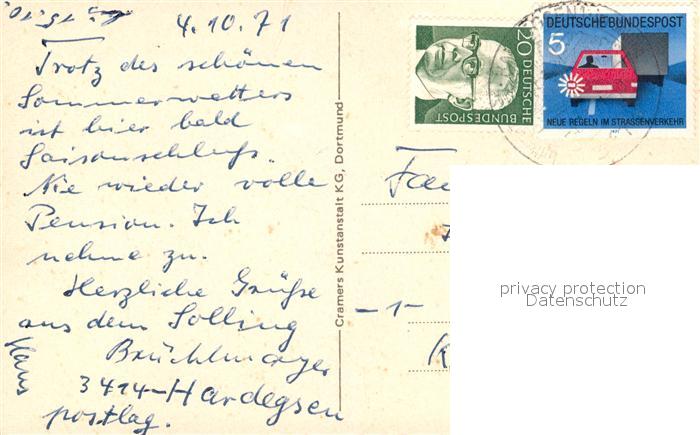 4.10.71
Trotz des schönen
Sommerwetters
ist hier bald
Saisonschluß.
Nie wieder volle
Pension. Ich
nehme zu.
Herzliche Grüße
aus dem Solling
Hans
Brüchlmayer
3414-Hardegsen
postlag.
Cramers Kunstanstalt KG, Dortmund
20
DEUTSCHE
BUNDESPOST
DEUTSCHE BUNDESPOST
5
NEUE REGELN IM STRASSENVERKEHR
Fa
-1-
K
privacy protection
Datenschutz